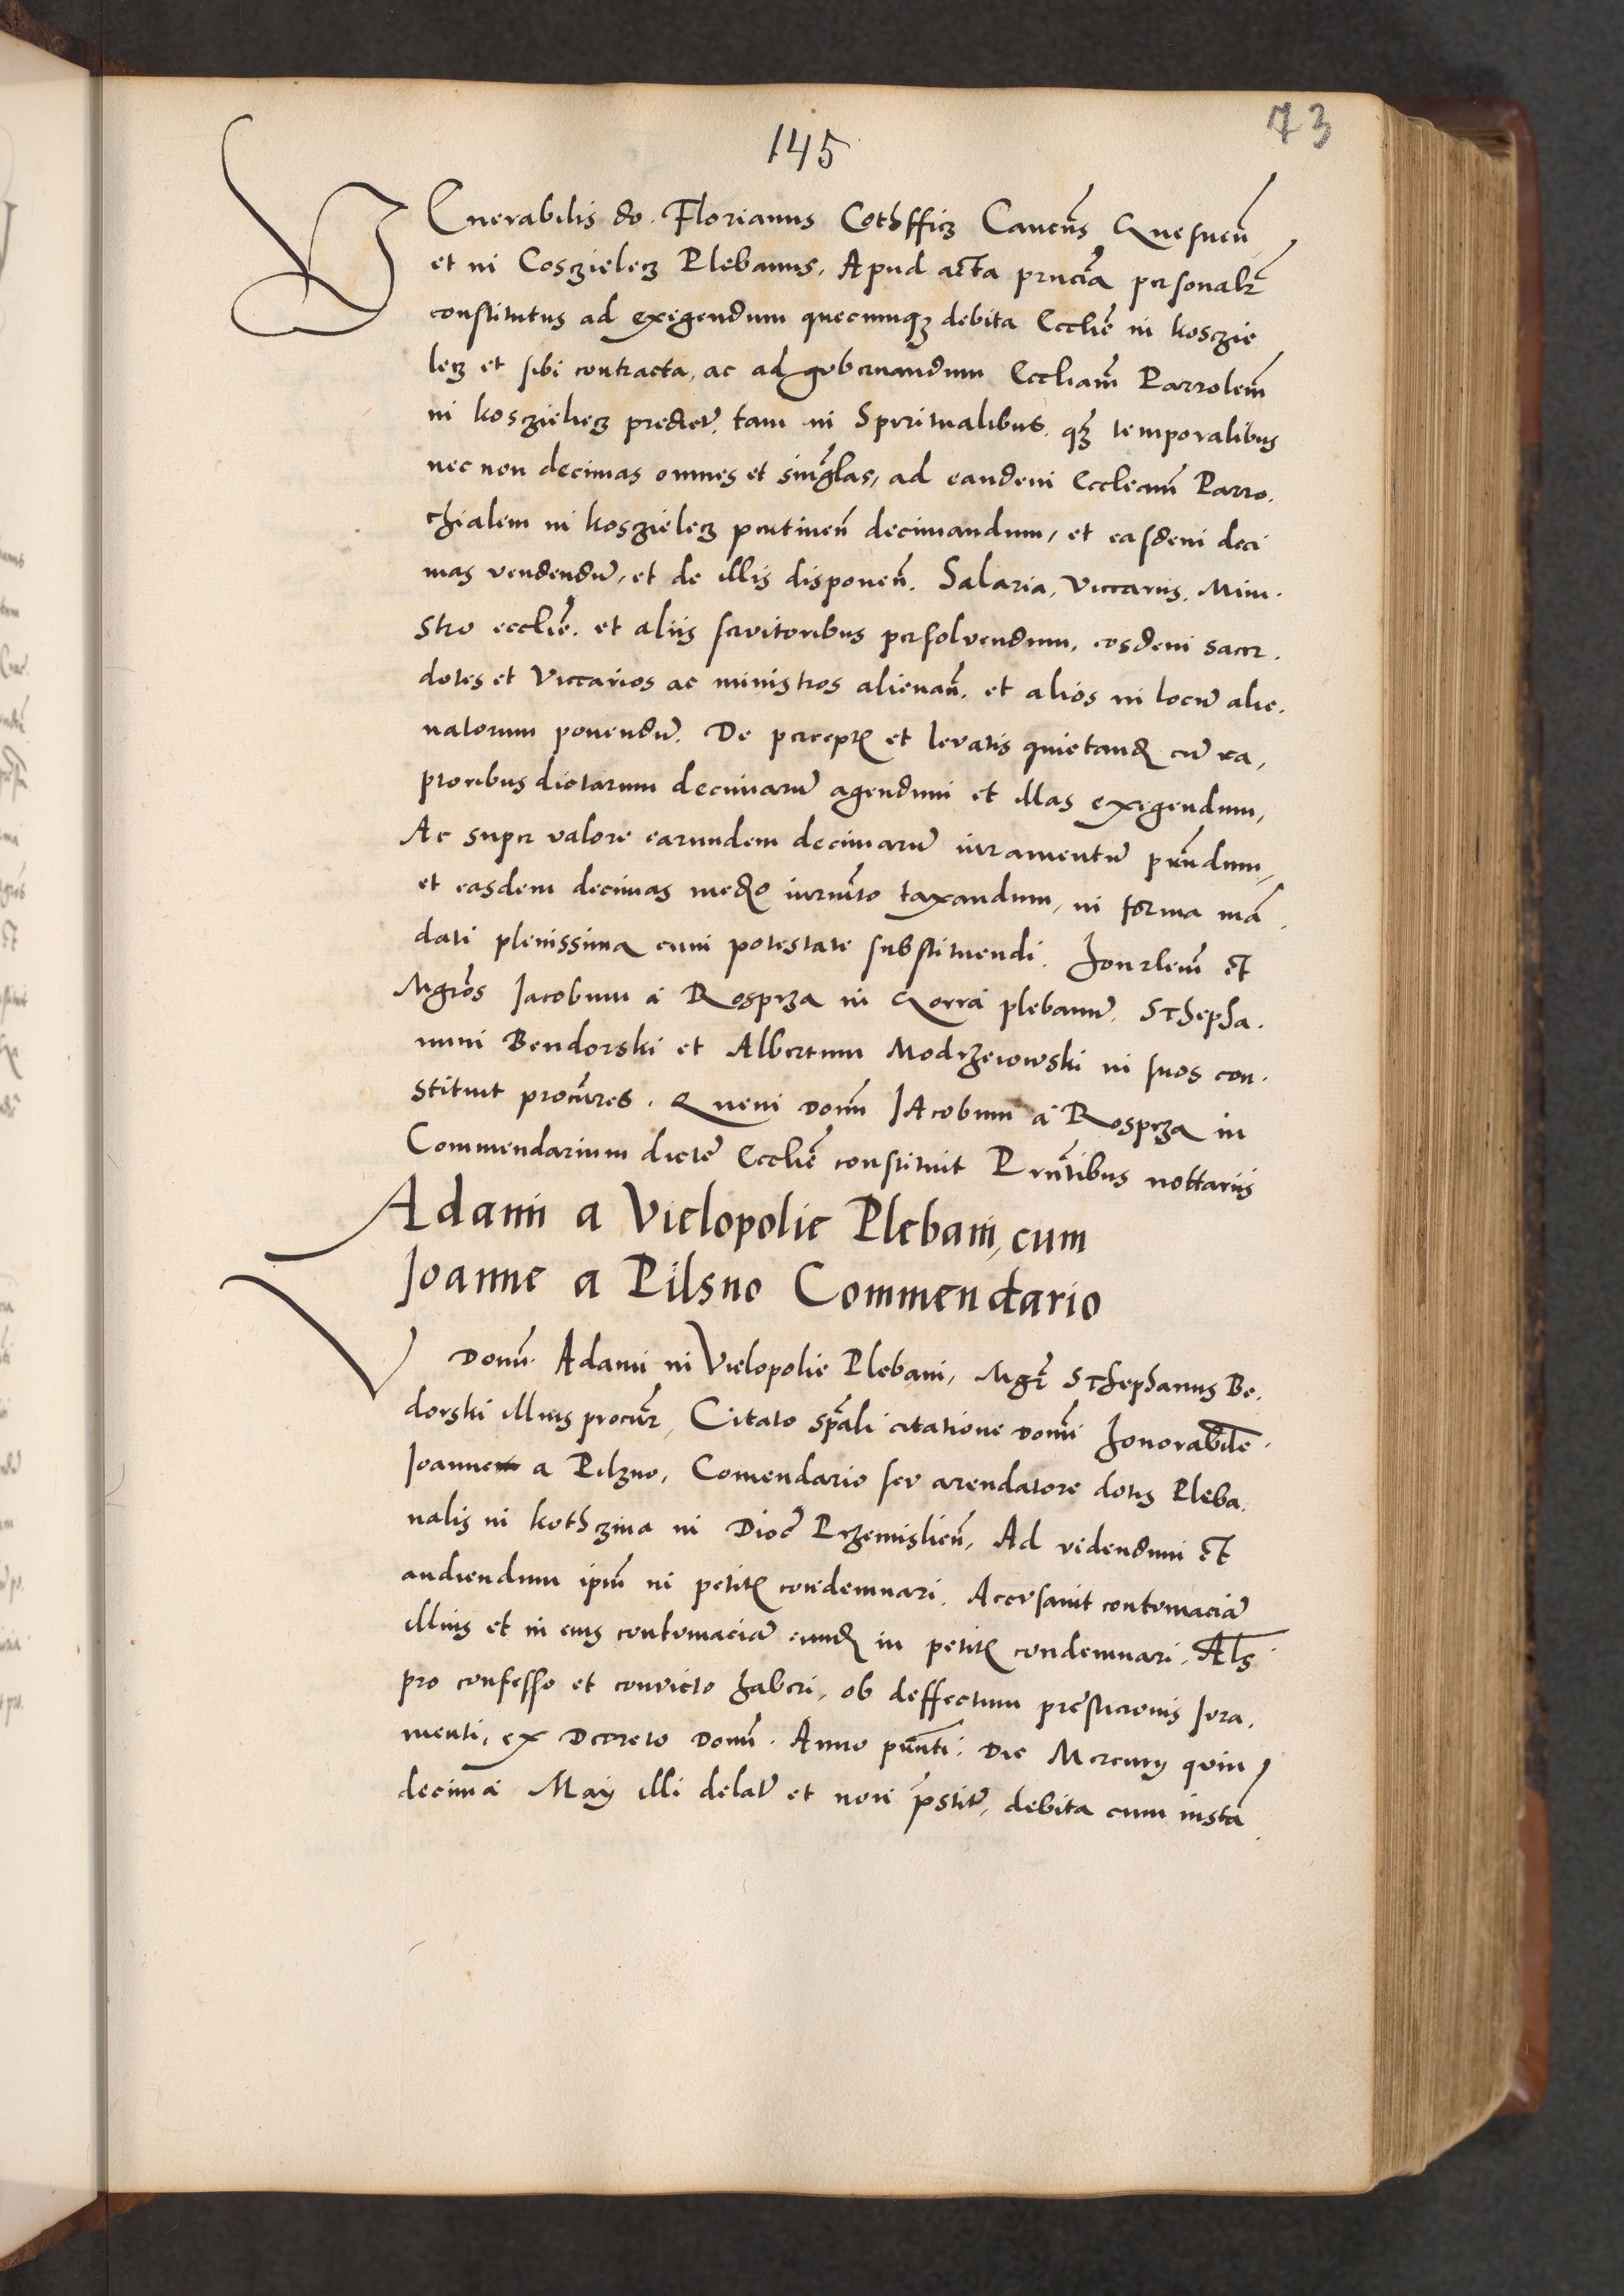 73
145
VEnerabilis do. Florianus Cothfficz Canoñs Gnesneñ
et in Cosczielecz Plebanus, Apud acta pñcia personalr̃
constitutus ad exigendum quecumqз debita Eccliẽ in koszie
lecz et sibi contracta, ac ad gubernandum Eccliam̃ Parrolem̃
in kosczielecz predictũ, tam in Spiritualibus, qз̃ temporalibus
nec non decimas omnes et singlas, ad eandem Eccleam̃ Parro.
chialem in koszielecz pertineñ decimandum, et easdem deci
mas vendendũ, et de illis disponeñ. Salaria, Viccariis, Mini.
stro ecclie. et aliis servitoribus persolvendum, eosdem sacer.
dotes et Viccarios ac ministros alienañ. et alios in locũ alie.
natorum ponendũ. De percept et levatis quietand cũ ra,
ptoribus dictarum decimarũ agendum et illas exigendum,
Ac super valore earundem decimarũ iuramentũ pñdum,
et easdem decimas medo iurm̃to taxandum, in forma mã
dati plenissima cum potestate substituendi. honrlem̃ et
Mgros Jacobum a Rosprza in Gorra plebanũ, Sthepha.
num Bendorski et Albertum Modrzeiowski in suos con.
stituit procũres. Quem Donũ JAcobum a Rosprza in
Commendarium dictẽ Eccliẽ constituit Prñtibus nottariis
Adami a Vielopolie Plebani, cum
Joanne a Pilsno Commendario
Domĩ Adami in Vielopolie Plebani, Mgr̃ Sthephanus Be.
dorski illius procũr, Citato spãli citatione Domĩ honorabile.
Joanne a Pilzno, Comendario seu arendatore dotis Pleba.
nalis in kothzina in Dioc̃ Przemislieñ, Ad videndum et
audiendum ipm̃ in petit condemnari. Accusavit contumaciã
illius et in eius contumaciã eund in petit condemnari, Als
pro confesso et convicto haberi, ob deffectum prestacionis Jura,
menti, ex Decreto Domĩ. Anno pñti. Die Mercurij quin
decima Maij illi delatĩ et non pr̃stitĩ, debita cum instã